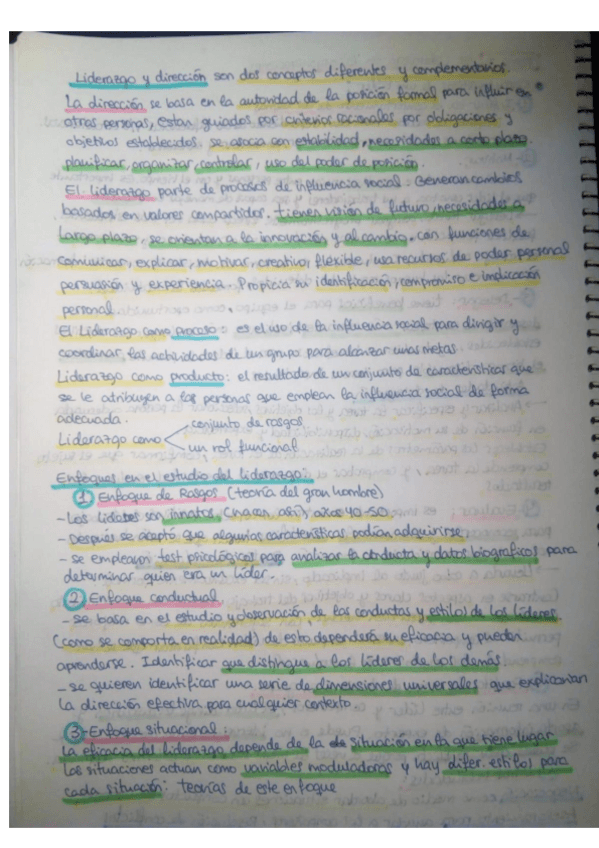 Liderazgo y dirección son dos conceptos diferentes y complementarios.
La dirección se basa en la autoridad de la posición formal para influir en
otras personas, estan guiados por criterios racionales por obligaciones y
objetivos establecidos. se asocia con estabilidad, necesidades a corto plazo.
planificar, organizar, controlar, uso del poder de posición.
El liderazgo parte de procesos de influencia social. Generan cambios
basados en valores compartidos. tienen visión de futuro, necesidades a
Largo plazo, se orientan a la innovación y al cambio. con funciones de
comunicar, explicar, motivar, creativo, flexible, usa recursos de poder personal
persuasión y experiencia. Propicia su identificación, compromiso e implicación
personal.
El Liderazgo como proceso: es el uso de la influencia social para dirigir y
coordinar las actividades de un grupo para alcanzar unas metas.
Liderazgo como producto: el resultado de un conjunto de características que
se le atribuyen a las personas que emplean la influencia social de forma
adecuada.
Liderazgo como
conjunto de rasgos
un rol funcional
Enfoques en el estudio del liderazgo:
1 Enfoque de Rasgos (teoría del gran hombre)
- Los líderes son innatos, (nacen así), años 40-50
- Después se aceptó que algunas características podían adquirirse
- se emplearon test psicológicos para analizar la conducta y datos biograficos para
determinar quien era un líder.
2 Enfoque conductual
- se basa en el estudio y observación de las conductas y estilos de los líderes
(como se comporta en realidad) de esto dependerá su eficacia y pueden
aprenderse. Identificar que distingue a los líderes de los demás
- se quieren identificar una serie de dimensiones universales que explicarían
La dirección efectiva para cualquier contexto
3 - Enfoque situacional:
La eficacia del liderazgo depende de la situación en la que tiene lugar
Las situaciones actuan como variables moduladoras y hay difer. estilos para
cada situación: teorías de este enfoque